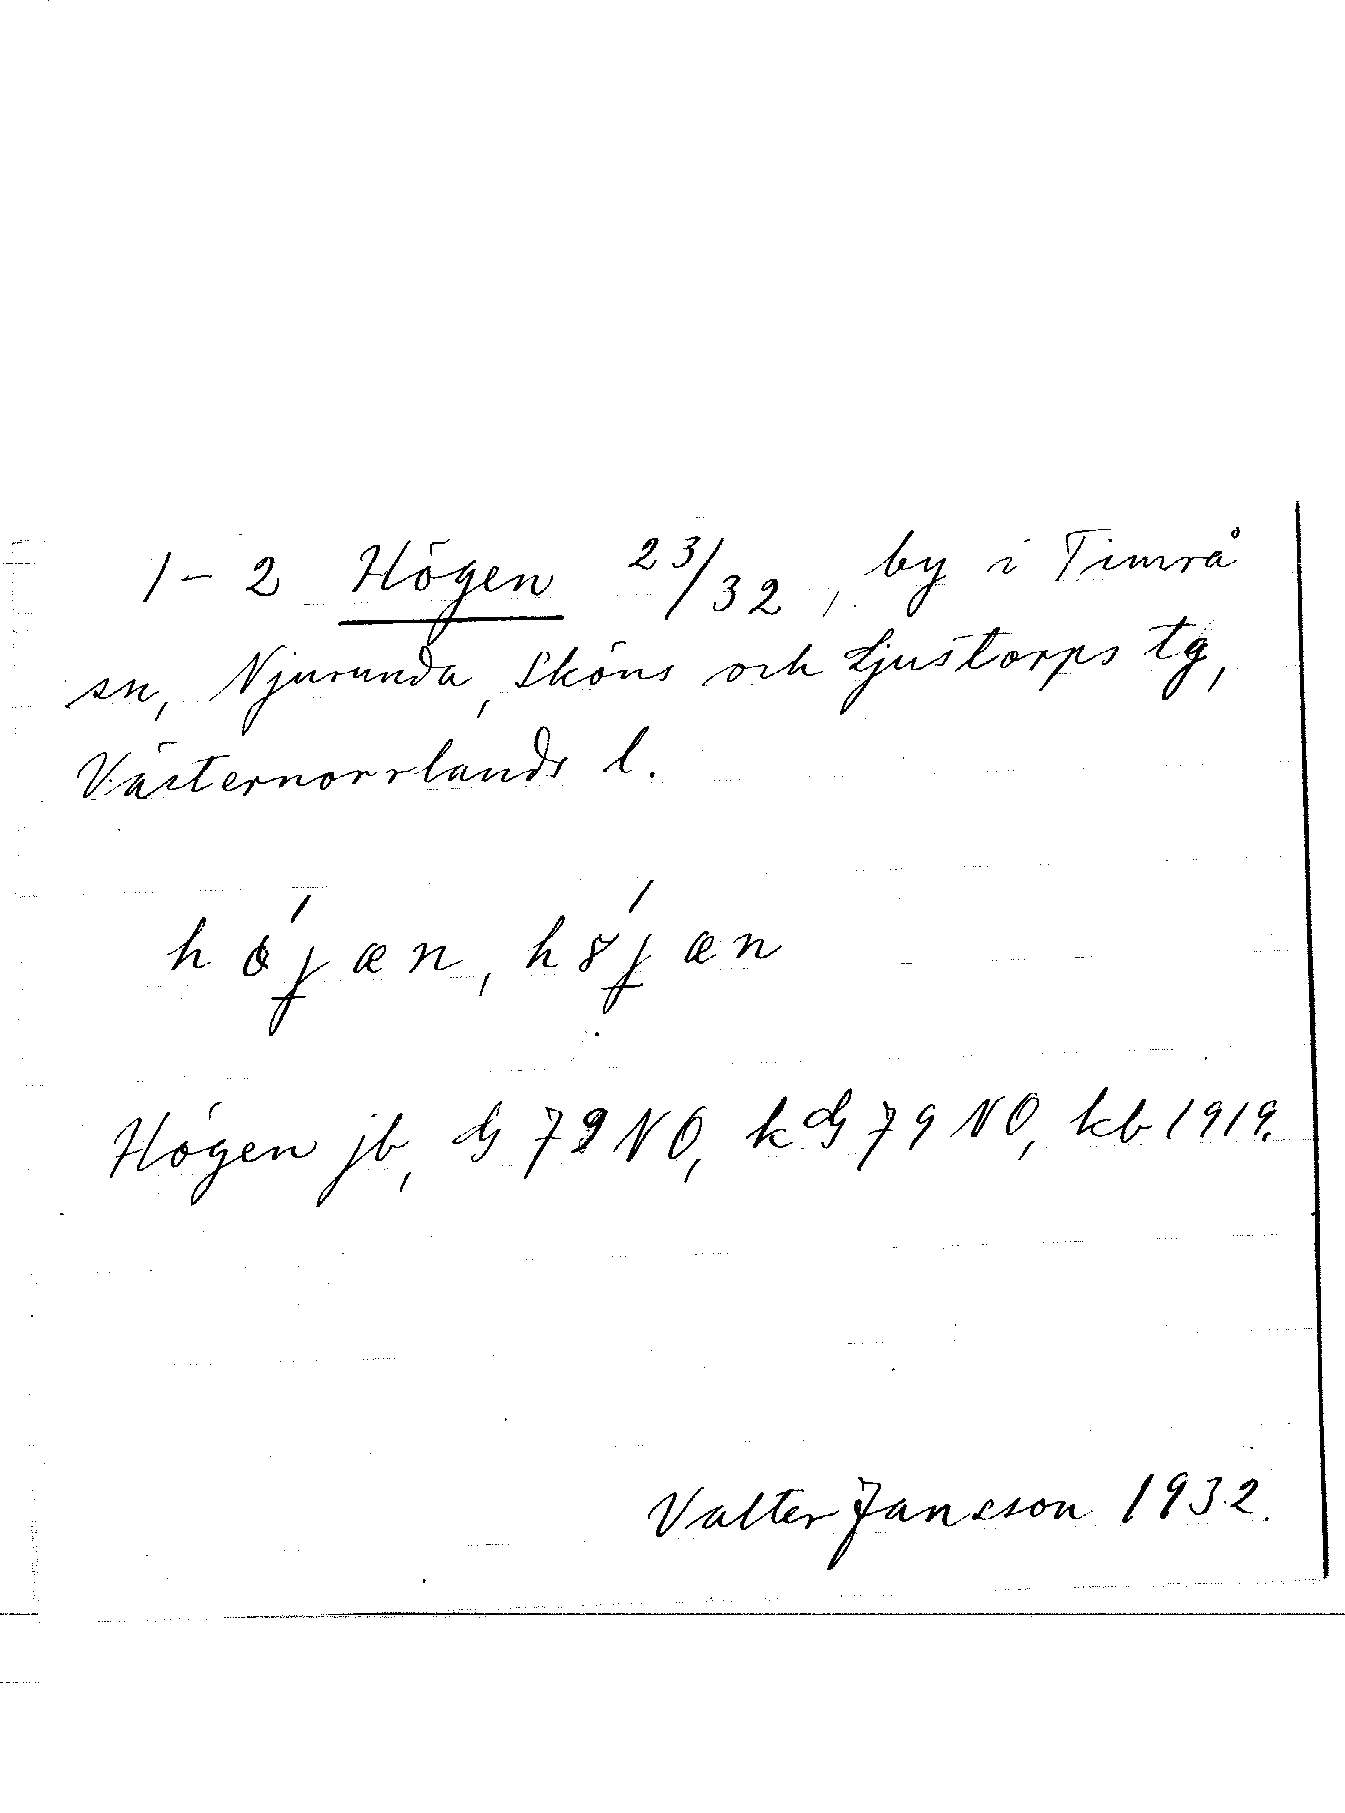 1–2 Högen 23/32, by i Timrå
sn, Njurunda, Sköns och Ljustorps tg,
Västernorrlands l.
Högen jb, G 79 NO, kG 79 NO, kb 1919.
Valter Jansson 1932.